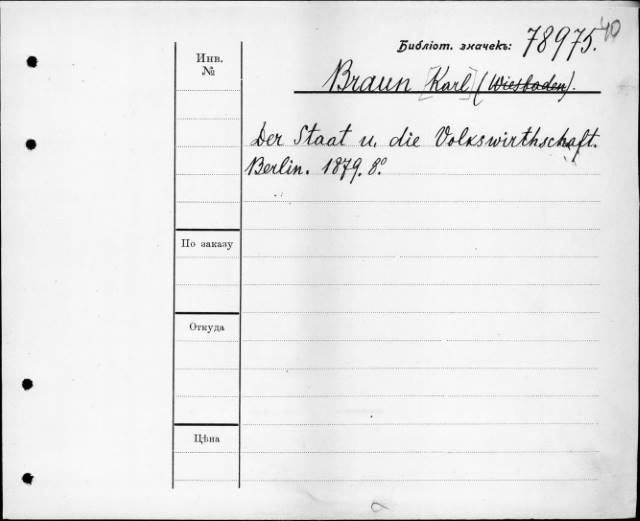 Библіот. значекъ: 78975.40
Инв.
№
Braun [Karl] (Wiesbaden).
Der Staat u. die Volkswirthschaft.
Berlin. 1879. 8º.
По заказу
Откуда
Цѣна